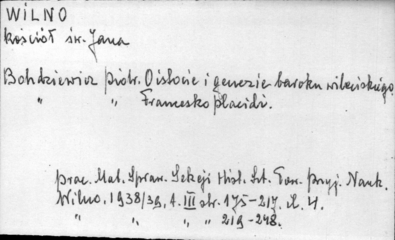 WILNO
Kościół św. Jana
Bohdziewicz Piotr. O istocie i genezie baroku wileńskiego
" " Francesko Placidi.
Prac. Mat. Spraw. Sekcji Hist. Szt. Tow. Przyj. Nauk.
Wilno. 1938/39, t. III str. 175-217. Z. 4.
" " " " 219-248.